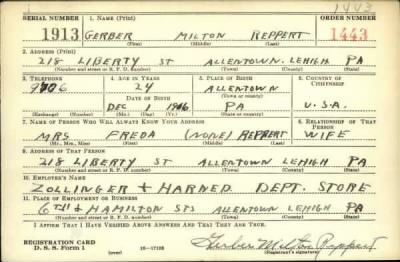 1443
SERIAL NUMBER 1. NAME (Print) ORDER NUMBER
1913 GERBER MILTON REPPERT 1443
(First) (Middle) (Last)
2. ADDRESS (Print)
218 LIBERTY ST ALLENTOWN. LEHIGH PA
(Number and street or R. F. D. number) (Town) (County) (State)
3. TELEPHONE 4. AGE IN YEARS 5. PLACE OF BIRTH 6. COUNTRY OF CITIZENSHIP
24 ALLENTOWN
DATE OF BIRTH (Town or county)
DEC 1 1916 PA U.S.A.
(Exchange) (Number) (Mo.) (Day) (Yr.) (State or country)
7. NAME OF PERSON WHO WILL ALWAYS KNOW YOUR ADDRESS 8. RELATIONSHIP OF THAT PERSON
MRS FREDA (NONE) REPPERT WIFE
(Mr., Mrs., Miss) (First) (Middle) (Last)
9. ADDRESS OF THAT PERSON
218 LIBERTY ST ALLENTOWN LEHIGH PA
(Number and street or R. F. D. number) (Town) (County) (State)
10. EMPLOYER'S NAME
ZOLLINGER + HARNED DEPT. STORE
11. PLACE OF EMPLOYMENT OR BUSINESS
6TH + HAMILTON STS ALLENTOWN LEHIGH PA
(Number and street or R. F. D. number) (Town) (County) (State)
I AFFIRM THAT I HAVE VERIFIED ABOVE ANSWERS AND THAT THEY ARE TRUE.
REGISTRATION CARD
D. S. S. Form 1 (over) Gerber Milton Reppert
(Registrant's signature)